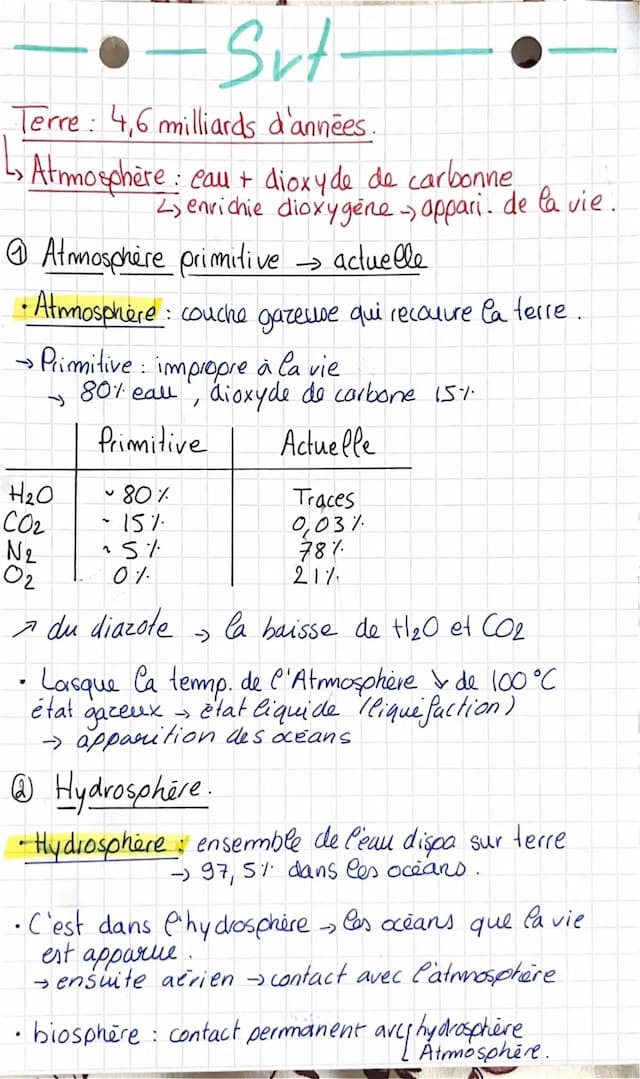 Svt
Terre : 4,6 milliards d'années.
↳ Atmosphère : eau + dioxyde de carbonne
↳ enrichie dioxygène → appari. de la vie.
① Atmosphère primitive → actuelle
• Atmosphère : couche gazeuse qui recouvre la terre.
→ Primitive : impropre à la vie
→ 80% eau, dioxyde de carbone 15%
Primitive Actuelle
H2O ~ 80% Traces
CO2 ~ 15% 0,03%
N2 ~ 5% 78%
O2 0% 21%
↗ du diazote → la baisse de H2O et CO2
• Lorsque la temp. de l'Atmosphère ↘ de 100°C
état gazeux → état liquide (liquéfaction)
→ apparition des océans
② Hydrosphère.
• Hydrosphère : ensemble de l'eau dispo sur terre
→ 97,5% dans les océans.
• C'est dans l'hydrosphère → les océans que la vie
est apparue.
→ ensuite aérien → contact avec l'atmosphère
• biosphère : contact permanent avec hydrosphère
Atmosphère.